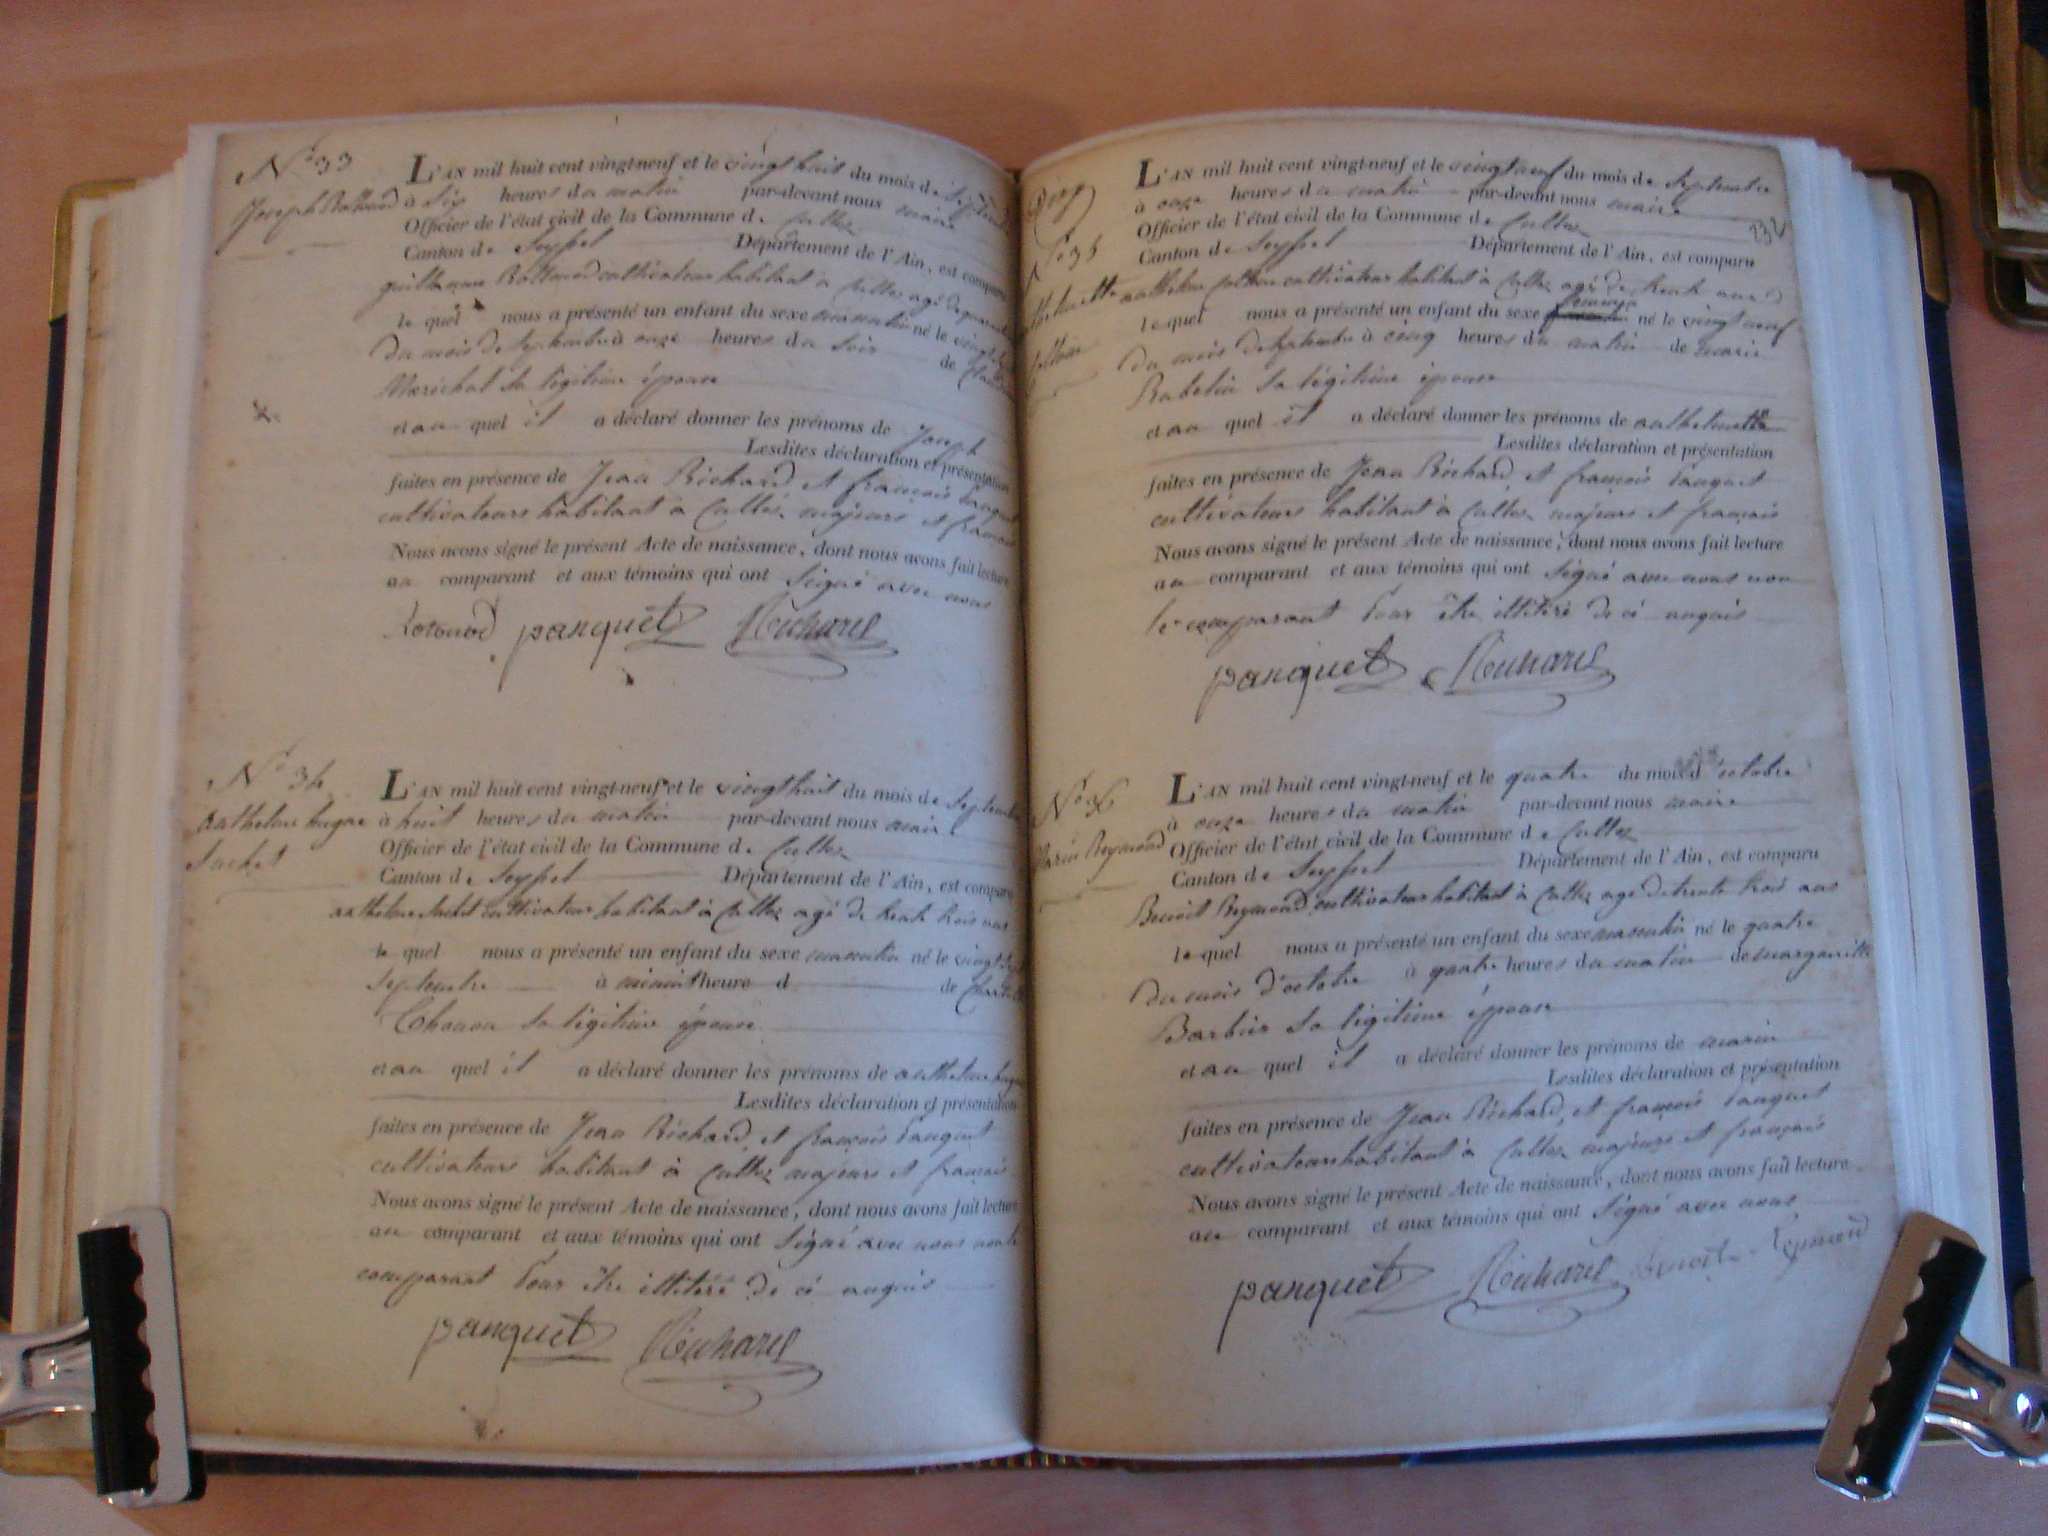 N.° 33
Joseph
L'AN mil huit cent vingt-neuf et le vingt huit du mois de septembre
à six heures du matin par-devant nous maire
Officier de l'état civil de la Commune de Culloz
Canton de Seyssel Département de l'Ain, est comparu
guillaume cultivateur habitant à Culloz agé de quarante
le quel nous a présenté un enfant du sexe masculin né le vingt
du mois de septembre à onze heures du soir de
Maréchal sa légitime épouse
et au quel il a déclaré donner les prénoms de Joseph
Lesdites déclaration et présentation
faites en présence de Jean Richard et françois panquet
cultivateurs habitant à Culloz majeurs et français
Nous avons signé le présent Acte de naissance, dont nous avons fait lecture
au comparant et aux témoins qui ont signé avec nous
panquet Richard
N.° 34
anthelme
Juchet
L'AN mil huit cent vingt-neuf et le vingt huit du mois de septembre
à huit heures du matin par-devant nous maire
Officier de l'état civil de la Commune de Culloz
Canton de Seyssel Département de l'Ain, est comparu
anthelme Juchet cultivateur habitant à Culloz agé de trente trois ans
le quel nous a présenté un enfant du sexe masculin né le vingt sept
septembre à minuit heure d de
sa légitime épouse
et au quel il a déclaré donner les prénoms de anthelme
Lesdites déclaration et présentation
faites en présence de Jean Richard, et françois panquet
cultivateurs habitant à Culloz majeurs et français
Nous avons signé le présent Acte de naissance, dont nous avons fait lecture
au comparant et aux témoins qui ont signé avec nous non le
comparant pour être illitéré de ci enquis
panquet Richard
232
N.° 35
anthelmette
L'AN mil huit cent vingt-neuf et le vingt neuf du mois de septembre
à onze heures du matin par-devant nous maire
Officier de l'état civil de la Commune de Culloz
Canton de Seyssel Département de l'Ain, est comparu
anthelme cultivateur habitant à Culloz agé de trente ans
féminin
le quel nous a présenté un enfant du sexe né le vingt neuf
du mois de septembre à cinq heures du matin de marie
Rabelin sa légitime épouse
et au quel il a déclaré donner les prénoms de anthelmette
Lesdites déclaration et présentation
faites en présence de Jean Richard et françois panquet
cultivateurs habitant à Culloz majeurs et français
Nous avons signé le présent Acte de naissance, dont nous avons fait lecture
au comparant et aux témoins qui ont signé avec nous non
le comparant pour être illitéré de ci enquis
panquet Richard
N.° 36
Marin Reymond
L'AN mil huit cent vingt-neuf et le quatre du mois d'octobre
à onze heures du matin par-devant nous maire
Officier de l'état civil de la Commune de Culloz
Canton de Seyssel Département de l'Ain, est comparu
Benoit Reymond cultivateur habitant à Culloz agé de trente trois ans
le quel nous a présenté un enfant du sexe masculin né le quatre
du mois d'octobre à quatre heures du matin de marguerite
Barbier sa légitime épouse
et au quel il a déclaré donner les prénoms de marin
Lesdites déclaration et présentation
faites en présence de Jean Richard, et françois panquet
cultivateurs habitant à Culloz majeurs et français
Nous avons signé le présent Acte de naissance, dont nous avons fait lecture
au comparant et aux témoins qui ont signé avec nous
panquet Richard Benoit Reymond